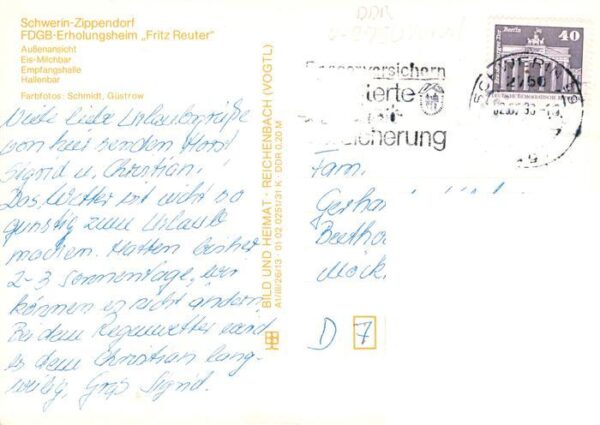 Schwerin-Zippendorf
FDGB-Erholungsheim „Fritz Reuter"
Außenansicht
Eis-Milchbar
Empfangshalle
Hallenbar
Farbfotos: Schmidt, Güstrow
Viele liebe Urlaubsgrüße
von hier senden Horst
Sigrid u. Christian!
Das Wetter ist nicht so
günstig zum Urlaub
machen. Hatten bisher
2-3 Sonnentage, wir
können es nicht ändern.
Bei dem Regenwetter wird
es dem Christian lang-
weilig, Gruß Sigrid.
BILD UND HEIMAT · REICHENBACH (VOGTL)
A1/III/26/13 01 02 0251/31 K · DDR 0,20 M
DDR
versichern
ierte
icherung
SCHWERIN
2750
Berlin
40
DEUTSCHE DEMOKRATISCHE
Fam.
Gerha
Beetho
Möck
D 7